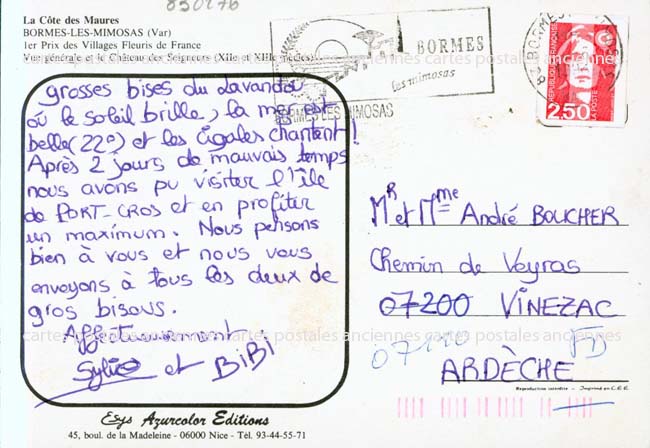 830276
La Côte des Maures
BORMES-LES-MIMOSAS (Var)
1er Prix des Villages Fleuris de France
Vue générale et le Château des Seigneurs (XIIe et XIIIe siècles)
BORMES
les mimosas
BORMES-LES-MIMOSAS
83 BORMES
REPUBLIQUE FRANÇAISE
2,50
LA POSTE
grosses bises du Lavandou
où le soleil brille, la mer est
belle (22°) et les cigales chantent !
Après 2 jours de mauvais temps
nous avons pu visiter l'île
de PORT-CROS et en profiter
un maximum. Nous pensons
bien à vous et nous vous
envoyons à tous les deux de
gros bisous.
Affectueusement
Sylvie et BiBi
Mr et Mme André BOUCHER
Chemin de Veyras
07200 VINEZAC
07110 FD
ARDÈCHE
cartes postales anciennes cartes postales anciennes cartes postales anciennes
Reproduction interdite - Imprimé en C.E.E.
Esys Azurcolor Editions
45, boul. de la Madeleine - 06000 Nice - Tél. 93-44-55-71